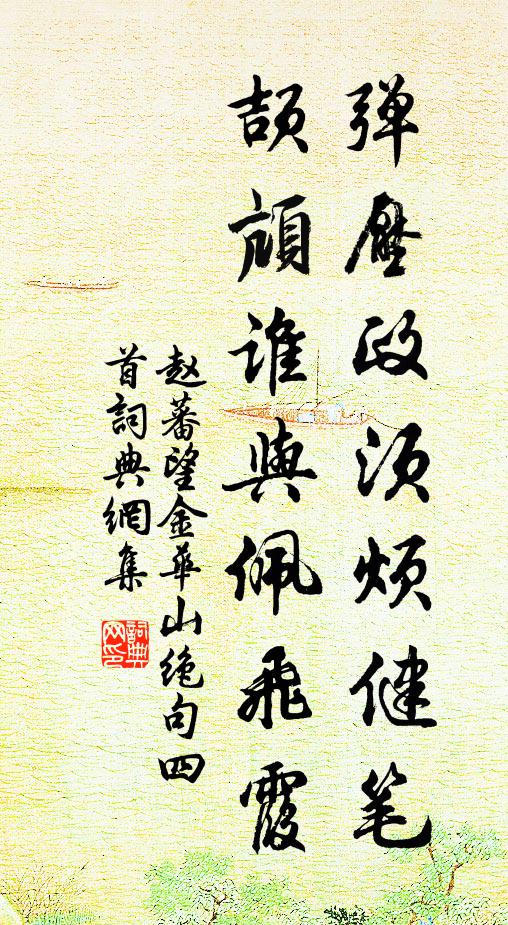 弹压政须烦健笔
颉颃谁与佩飞霞
赵蕃望金华山绝句四
首词典网集
詞典
网印